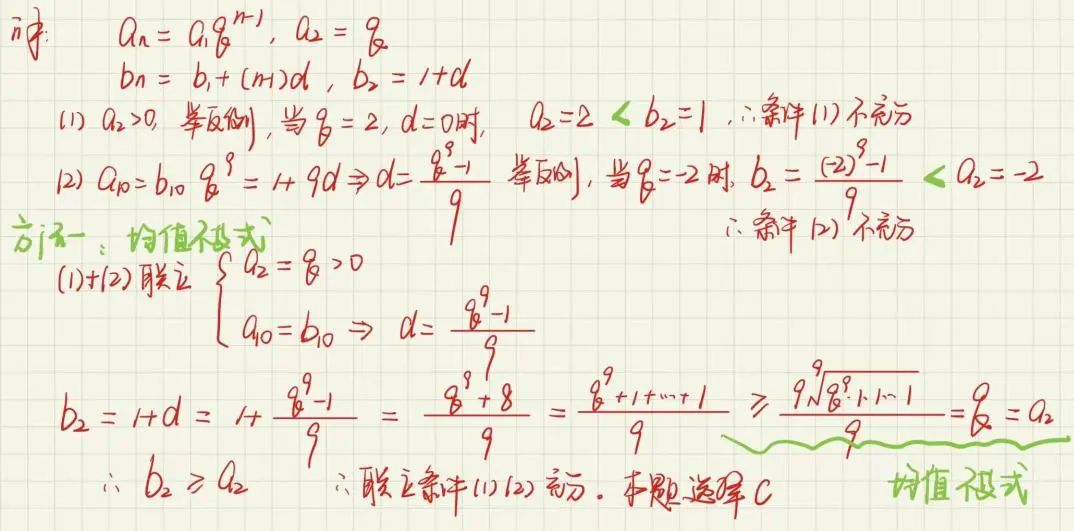 解: aₙ = a₁qⁿ⁻¹, a₂ = q
bₙ = b₁ + (n-1)d , b₂ = 1+d
(1) a₂>0, 举反例, 当q = 2, d=0时, a₂=2 < b₂=1 ∴条件(1)不充分
(2) a₁₀=b₁₀ q⁹ = 1+9d ⇒ d= (q⁹-1)/9 举反例, 当q=-2时, b₂ = ((-2)⁹-1)/9 < a₂=-2
∴条件(2)不充分
方法一: 均值不等式
(1)+(2)联立 { a₂ = q >0
a₁₀=b₁₀ ⇒ d= (q⁹-1)/9
b₂ = 1+d = 1+ (q⁹-1)/9 = (q⁹+8)/9 = (q⁹+1+…+1)/9 ≥ 9⁹√(q⁹·1·1…1)/9 = q = a₂
∴ b₂ ≥ a₂ ∴联立条件(1)(2)充分. 本题选择C 均值不等式